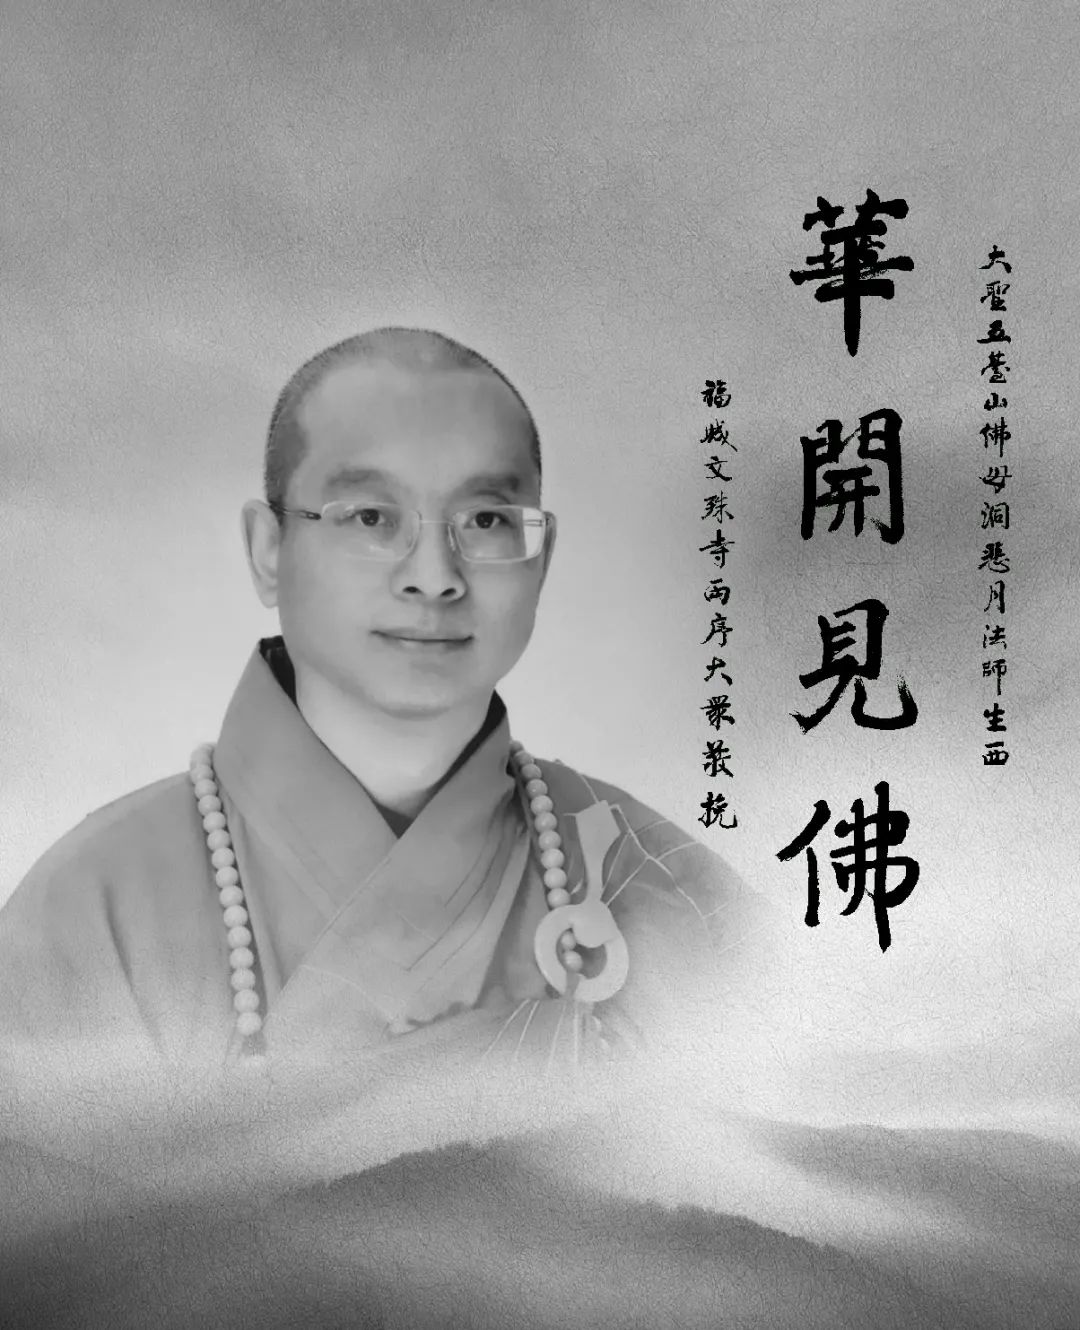 大聖五臺山佛母洞悲月法師生西
華開見佛
福城文殊寺兩序大眾敬挽